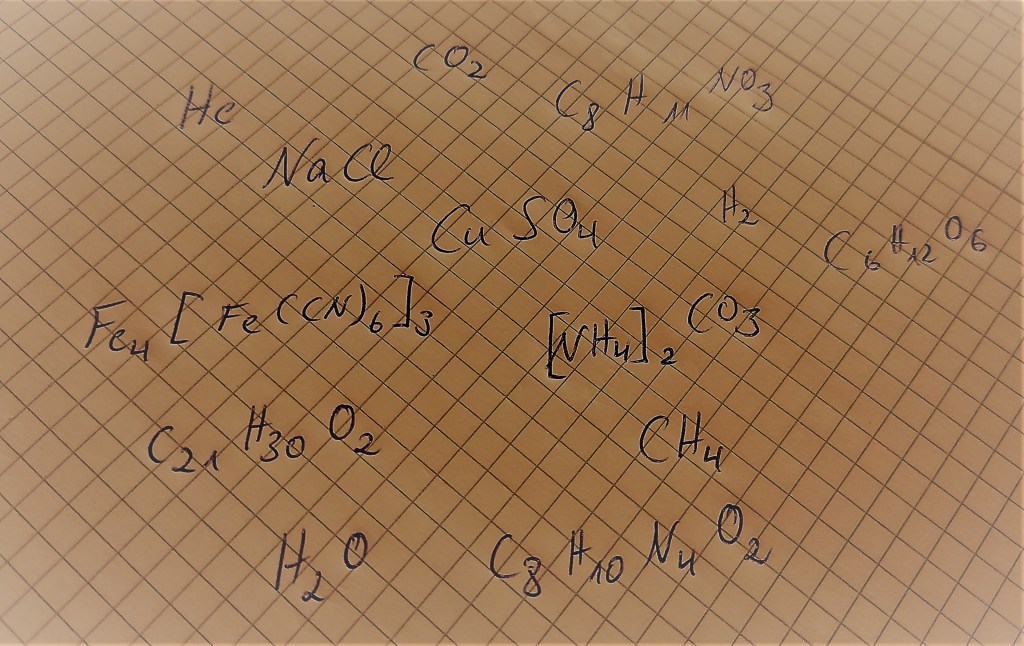 CO2
He
C8H11NO3
NaCl
CuSO4
H2
C6H12O6
Fe4[Fe(CN)6]3
[NH4]2CO3
C21H30O2
CH4
H2O
C8H10N4O2